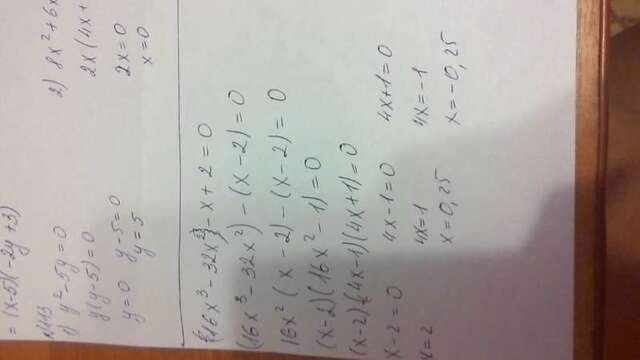 = (x-5)(-2y+3)
1) y²-5y=0
y(y-5)=0
y=0 y-5=0
y=5
2) 8x²+6x
2x(4x+
2x=0
x=0
16x³-32x²-x+2=0
(16x³-32x²)-(x-2)=0
16x²(x-2)-(x-2)=0
(x-2)(16x²-1)=0
(x-2)(4x-1)(4x+1)=0
x-2=0 4x-1=0 4x+1=0
x=2 4x=1 4x=-1
x=0,25 x=-0,25